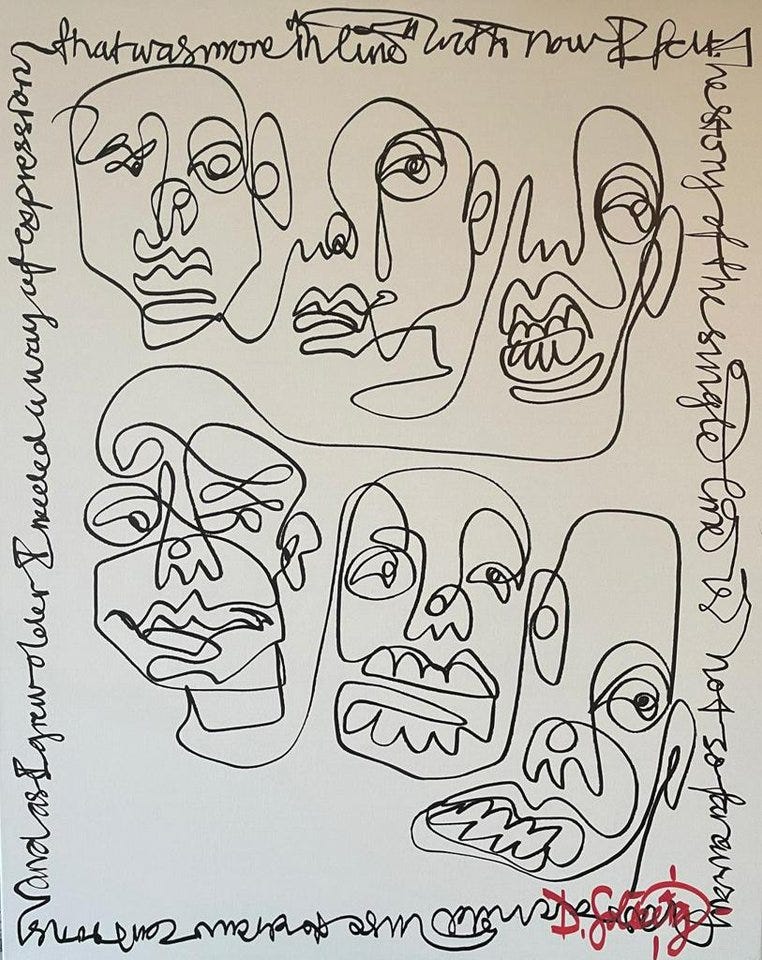 The story of the single line is not so far away
as a child I use to draw cartoons
and as I grew older I needed a way of expression
that was more "in line" with now I felt
D.